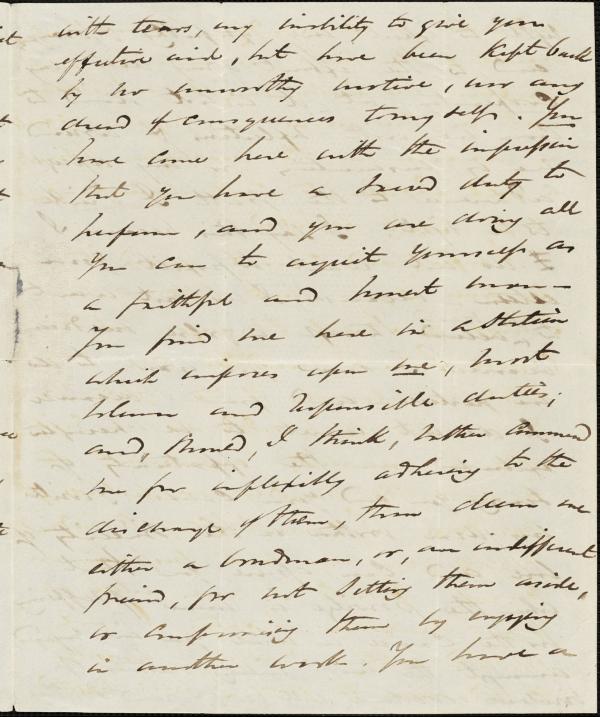 with tears, my inability to give you
effective aid, but have been kept back
by no unworthy motive, nor any
dread of consequences to myself. You
have come here with the impression
that you have a sacred duty to
perform, and you are doing all
you can to acquit yourself as
a faithful and honest man —
You find me here in a station
which imposes upon me, most
solemn and responsible duties;
and, should, I think, rather commend
me for inflexibly adhering to the
discharge of them, than deem me
either a bondman, or, an indifferent
friend, for not setting them aside,
or compromising them by engaging
in another work. You have a